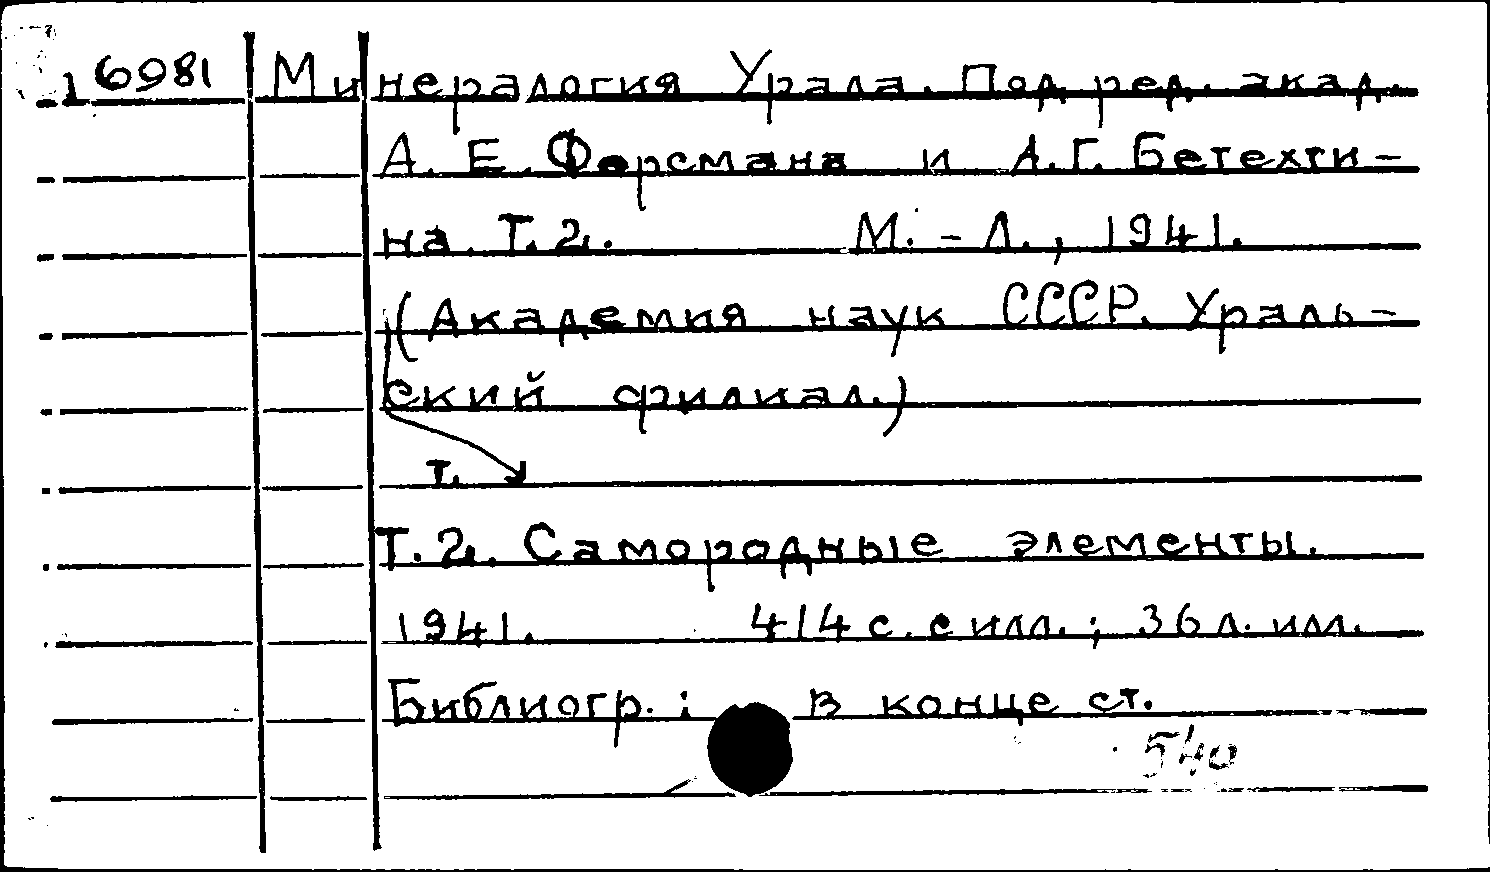 16981 Минералогия Урала. Под ред. акад.
А. Е. Ферсмана и А. Г. Бетехти-
на. Т. 2. М. - Л., 1941.
(Академия наук СССР. Ураль-
ский филиал.)
т.
Т. 2. Самородные элементы.
1941. 414 с. с илл.; 36 л. илл.
Библиогр.: в конце ст.
540